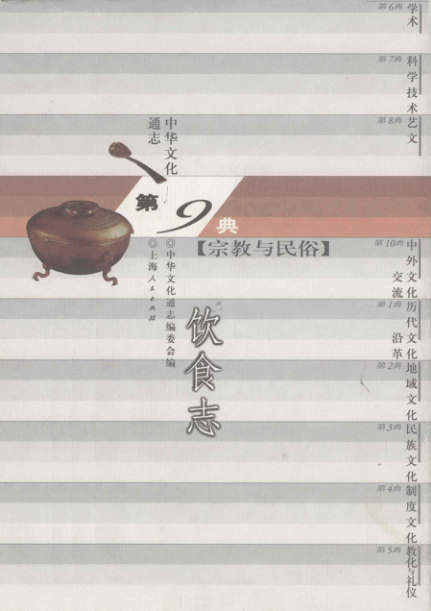 第6典 学术
第7典 科学技术
第8典 艺文
中华文化
通志
第9典
【宗教与民俗】
◎中华文化通志编委会编
◎上海人民出版社
饮食志
第10典 中外文化
交流
第1典 历代文化
沿革
第2典 地域文化
第3典 民族文化
第4典 制度文化
第5典 教化与礼仪